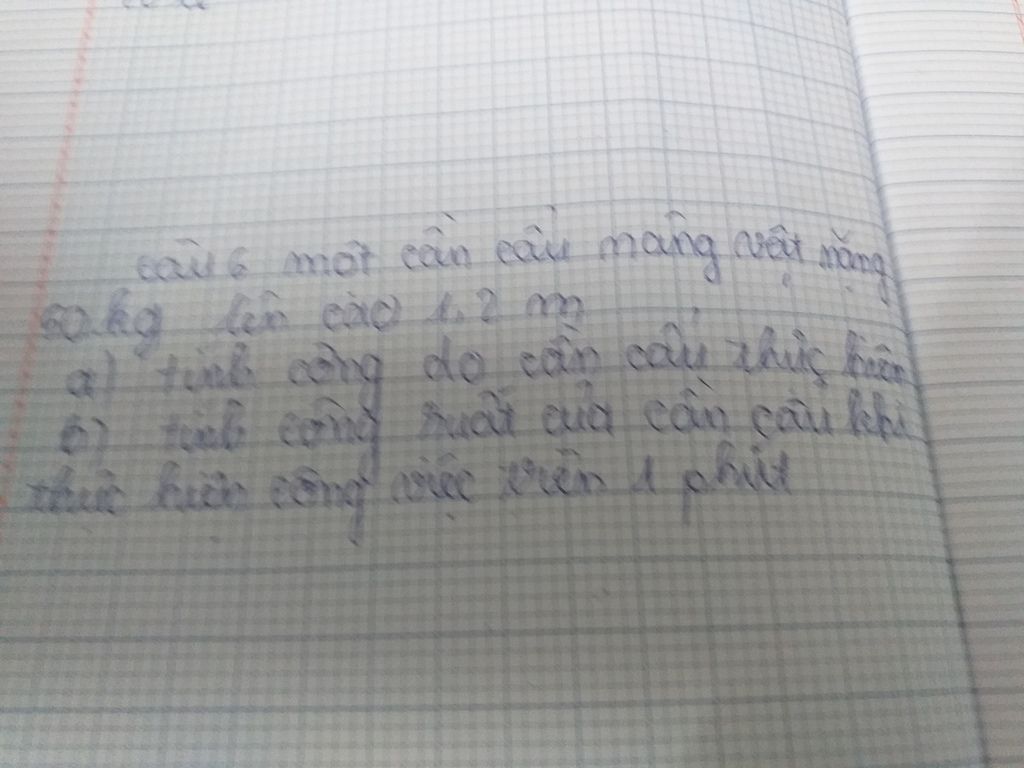 câu 6 một cần cẩu nâng vật nặng
60kg lên cao 1,2 m
a) tính công do cần cẩu thực hiện
b) tính công suất của cần cẩu khi
thực hiện công việc trên 1 phút